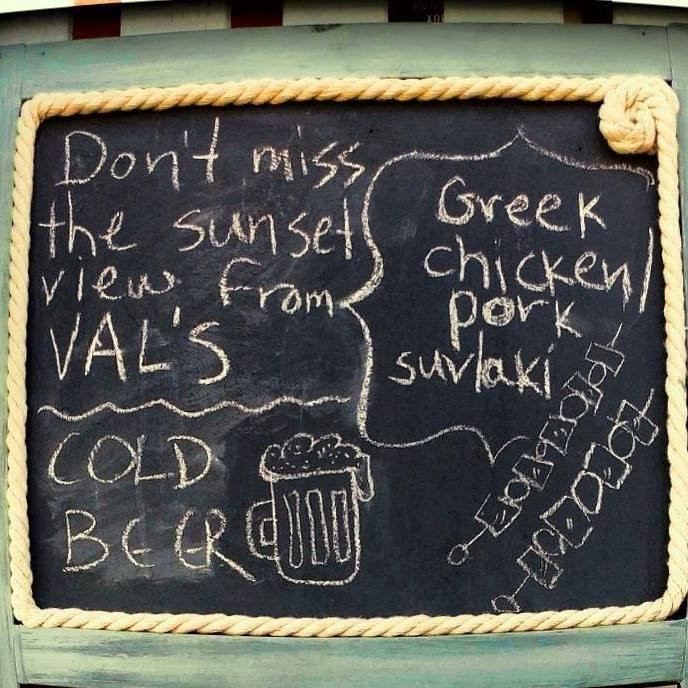 Don't miss
the sunset
view from
VAL'S
COLD
BEER
Greek
chicken/
pork
suvlaki